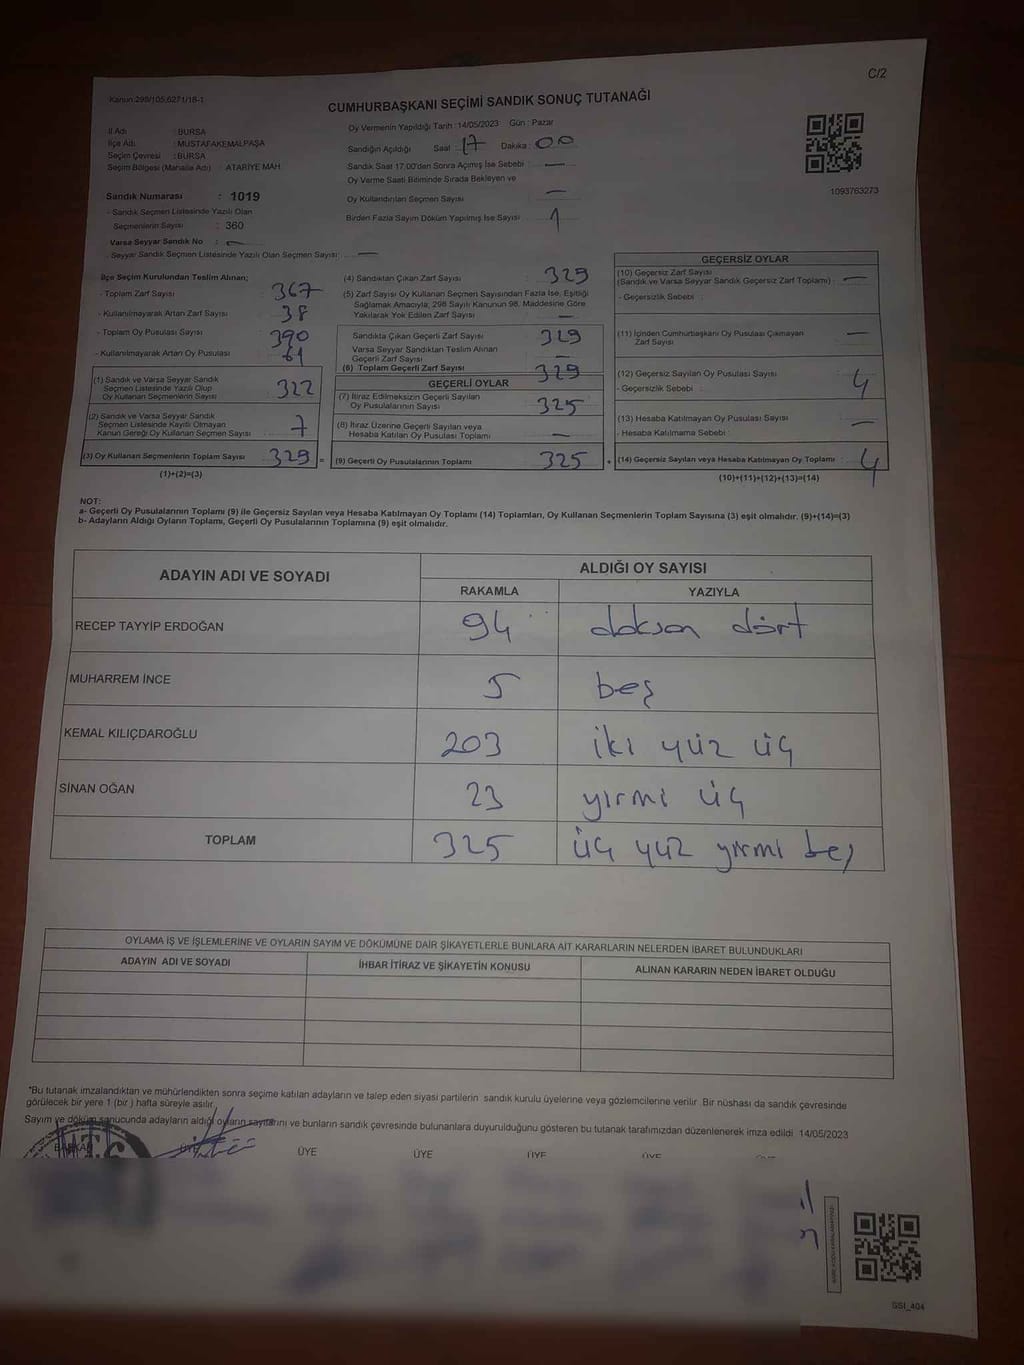 C/2
Kanun:298/105,6271/18-1
CUMHURBAŞKANI SEÇİMİ SANDIK SONUÇ TUTANAĞI
İl Adı : BURSA
İlçe Adı : MUSTAFAKEMALPAŞA
Seçim Çevresi : BURSA
Seçim Bölgesi (Mahalle Adı) : ATARİYE MAH.
Sandık Numarası : 1019
- Sandık Seçmen Listesinde Yazılı Olan
Seçmenlerin Sayısı : 360
Varsa Seyyar Sandık No : —
- Seyyar Sandık Seçmen Listesinde Yazılı Olan Seçmen Sayısı: —
Oy Vermenin Yapıldığı Tarih :14/05/2023 Gün : Pazar
Sandığın Açıldığı Saat 17 Dakika: 00
Sandık Saat 17.00'den Sonra Açımış İse Sebebi : —
Oy Verme Saati Bitiminde Sırada Bekleyen ve
Oy Kullandırılan Seçmen Sayısı —
Birden Fazla Sayım Döküm Yapılmış İse Sayısı 1
1093763273
İlçe Seçim Kurulundan Teslim Alınan;
- Toplam Zarf Sayısı 367
- Kullanılmayarak Artan Zarf Sayısı 38
- Toplam Oy Pusulası Sayısı 390
- Kullanılmayarak Artan Oy Pusulası 61
(1) Sandık ve Varsa Seyyar Sandık
Seçmen Listesinde Yazılı Olup
Oy Kullanan Seçmenlerin Sayısı 322
(2) Sandık ve Varsa Seyyar Sandık
Seçmen Listesinde Kayıtlı Olmayan
Kanun Gereği Oy Kullanan Seçmen Sayısı 7
(3) Oy Kullanan Seçmenlerin Toplam Sayısı 329 =
(1)+(2)=(3)
(4) Sandıktan Çıkan Zarf Sayısı : 329
(5) Zarf Sayısı Oy Kullanan Seçmen Sayısından Fazla İse, Eşitliği
Sağlamak Amacıyla, 298 Sayılı Kanunun 98. Maddesine Göre
Yakılarak Yok Edilen Zarf Sayısı : —
Sandıkta Çıkan Geçerli Zarf Sayısı : 329
Varsa Seyyar Sandıktan Teslim Alınan
Geçerli Zarf Sayısı : —
(6) Toplam Geçerli Zarf Sayısı : 329
GEÇERLİ OYLAR
(7) İtiraz Edilmeksizin Geçerli Sayılan
Oy Pusulalarının Sayısı : 325
(8) İtiraz Üzerine Geçerli Sayılan veya
Hesaba Katılan Oy Pusulası Toplamı : —
(9) Geçerli Oy Pusulalarının Toplamı : 325 +
GEÇERSİZ OYLAR
(10) Geçersiz Zarf Sayısı
(Sandık ve Varsa Seyyar Sandık Geçersiz Zarf Toplamı) : —
- Geçersizlik Sebebi :
(11) İçinden Cumhurbaşkanı Oy Pusulası Çıkmayan
Zarf Sayısı : —
(12) Geçersiz Sayılan Oy Pusulası Sayısı : 4
- Geçersizlik Sebebi :
(13) Hesaba Katılmayan Oy Pusulası Sayısı : —
- Hesaba Katılmama Sebebi :
(14) Geçersiz Sayılan veya Hesaba Katılmayan Oy Toplamı : 4
(10)+(11)+(12)+(13)=(14)
NOT:
a- Geçerli Oy Pusulalarının Toplamı (9) ile Geçersiz Sayılan veya Hesaba Katılmayan Oy Toplamı (14) Toplamları, Oy Kullanan Seçmenlerin Toplam Sayısına (3) eşit olmalıdır. (9)+(14)=(3)
b- Adayların Aldığı Oyların Toplamı, Geçerli Oy Pusulalarının Toplamına (9) eşit olmalıdır.
ADAYIN ADI VE SOYADI
ALDIĞI OY SAYISI
RAKAMLA YAZIYLA
RECEP TAYYİP ERDOĞAN 94 doksan dört
MUHARREM İNCE 5 beş
KEMAL KILIÇDAROĞLU 203 iki yüz üç
SİNAN OĞAN 23 yirmi üç
TOPLAM 325 üç yüz yirmi beş
OYLAMA İŞ VE İŞLEMLERİNE VE OYLARIN SAYIM VE DÖKÜMÜNE DAİR ŞİKAYETLERLE BUNLARA AİT KARARLARIN NELERDEN İBARET BULUNDUKLARI
ADAYIN ADI VE SOYADI İHBAR İTİRAZ VE ŞİKAYETİN KONUSU ALINAN KARARIN NEDEN İBARET OLDUĞU
*Bu tutanak imzalandıktan ve mühürlendikten sonra seçime katılan adayların ve talep eden siyasi partilerin sandık kurulu üyelerine veya gözlemcilerine verilir. Bir nüshası da sandık çevresinde
görülecek bir yere 1 (bir ) hafta süreyle asılır.
Sayım ve döküm sonucunda adayların aldığı oyların sayılarını ve bunların sandık çevresinde bulunanlara duyurulduğunu gösteren bu tutanak tarafımızdan düzenlenerek imza edildi 14/05/2023
BAŞKAN ÜYE ÜYE ÜYE ÜYE ÜYE
SSI_404